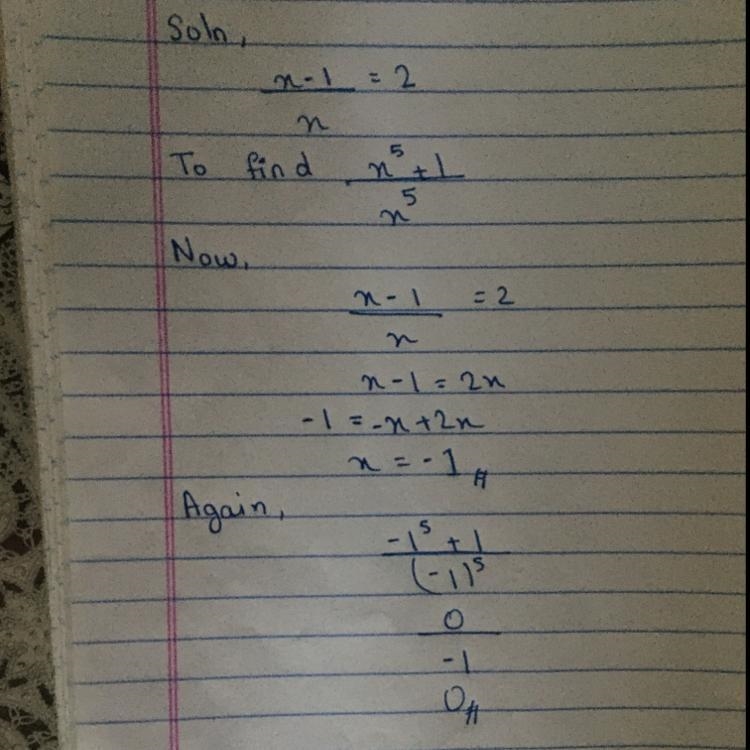 Soln,
x-1 = 2
x
To find x⁵+1
x⁵
Now,
x-1 = 2
x
x-1 = 2x
-1 = -x+2x
x = -1 #
Again,
-1⁵ + 1
(-1)⁵
0
-1
0 #